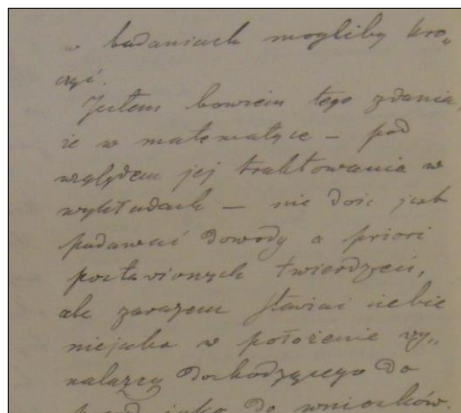 w badaniach mogliby kro„
czyć.
Jestem bowiem tego zdania,
że w matematyce – pod
względem jej traktowania w
wykładach – nie dość jest
podawać dowody a priori
postawionych twierdzeń,
ale zarazem stawiać siebie
niejako w położenie wy„
nalazcy dochodzącego do
do wniosków.